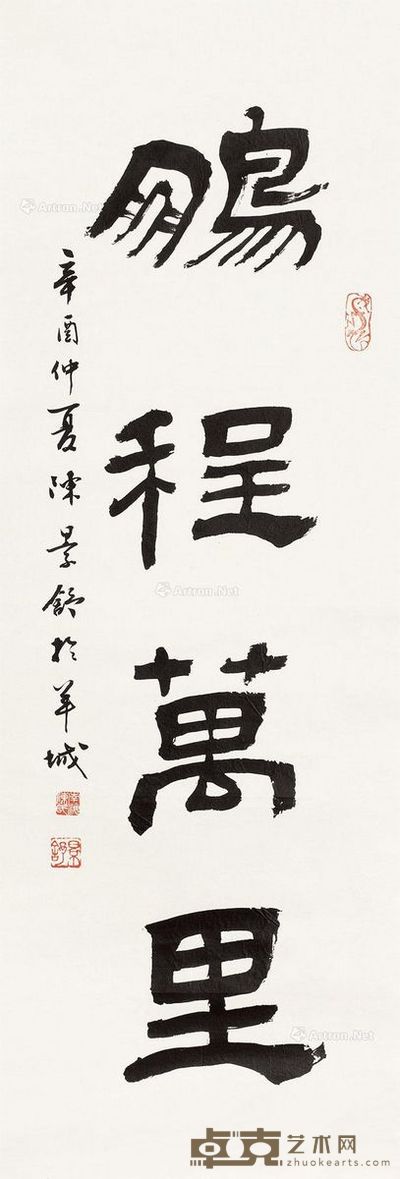 鵬程萬里
辛酉仲夏陳景舒於羊城
Artron.Net
Artron.Net
Artron.Net
卓克艺术网
zhuokearts.com